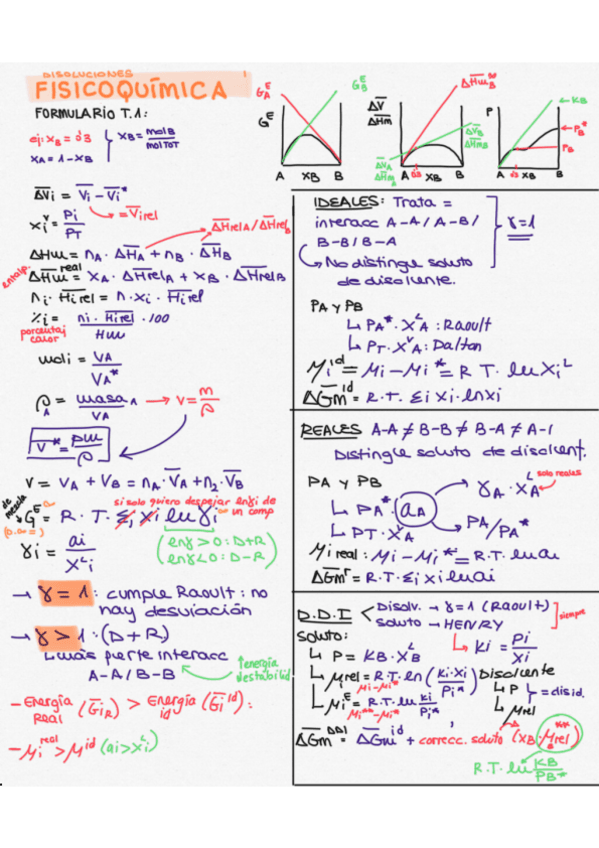 DISOLUCIONES
1
FISICOQUÍMICA
FORMULARIO T.1:
ej: XB = 0'3
XB = mol B / mol TOT
XA = 1 - XB
ΔV̅i = V̅i - V̅i*
= V̅i rel
xiᵛ = Pi / PT
ΔH̅relA / ΔH̅relB
ΔHm = nA · ΔH̅A + nB · ΔH̅B
entalp.
ΔH̅m real = XA · ΔH̅relA + XB · ΔH̅relB
ni · H̅irel = n · xi · H̅irel
%i = ni · H̅irel / Hm · 100
porcentaj calor
moli = VA / VA*
ρA = masaA / VA → V = m / ρ
V̅* = PM / ρ
V = VA + VB = nA · V̅A + n2 · V̅B
si solo quiero despejar lnγi de un comp
de mezcla
G̅ᴱ = R · T · Σi xi ln γi
γi = ai / xᴸi
(lnγ > 0 : D+R)
(lnγ < 0 : D-R)
→ γ = 1 : cumple Raoult : no
hay desviación
→ γ > 1 : (D+R)
↳ más fuerte interacc
A-A / B-B
↑ energía
destabilid
- Energía Real (G̅iR) > Energía id (G̅i id) :
- μi real > μ id (ai > xiᴸ)
GAᴱ
GBᴱ
Gᴱ
A XB B
ΔV̅
ΔH̅m
ΔV̅A
ΔH̅mA
ΔV̅B
ΔH̅mB
A 0'3 XB B
P
KB
PB*
PB
A 0'3 XB B
IDEALES: Trata =
interacc A-A / A-B /
B-B / B-A
γ = 1
↳ No distingue soluto
de disolvente.
PA y PB
↳ PA* · XᴸA : Raoult
↳ PT · XᵛA : Dalton
μi id = μi - μi* = R T · ln Xiᴸ
ΔG̅m id = R.T. Σi xi · ln xi
REALES A-A ≠ B-B ≠ B-A ≠ A-1
Distingue soluto de disolvent.
PA y PB
solo reales
↳ PA* · aA → γA · XAᴸ
↳ PT · XᵛA
PA / PA*
μi real : μi - μi* = R.T. ln ai
ΔG̅mʳ = R.T. Σi xi ln ai
D.D.I
Disolv. → γ = 1 (Raoult)
soluto → HENRY
siempre
Soluto:
↳ Ki = Pi / Xi
↳ P = KB · XᴸB
↳ μrel = R.T. ln (Ki·Xi / Pi*)
μi - μi*
↳ μiᴱ = R.T. ln Ki / Pi*
μi** - μi*
Disolvente
↳ P
↳ μrel
= dis id.
ΔG̅m DDI = ΔG̅m id + correcc. soluto (XB · μrel**)
R.T. ln KB / PB*